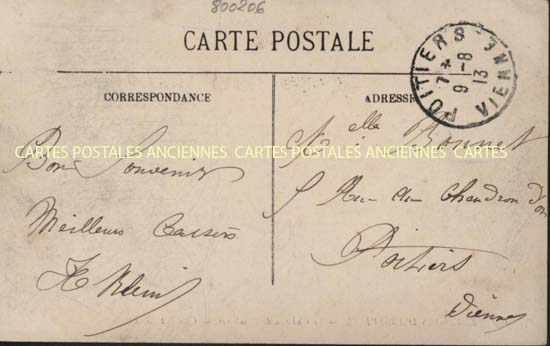 800206
CARTE POSTALE
POITIERS
7 * 9 -8 13
VIENNE
CORRESPONDANCE
ADRESSE
CARTES POSTALES ANCIENNES CARTES POSTALES ANCIENNES CARTES
Bon Souvenir
Meilleurs Baisers
Melle Bonnet
5 Rue du Chaudron d'or
Poitiers
Vienne